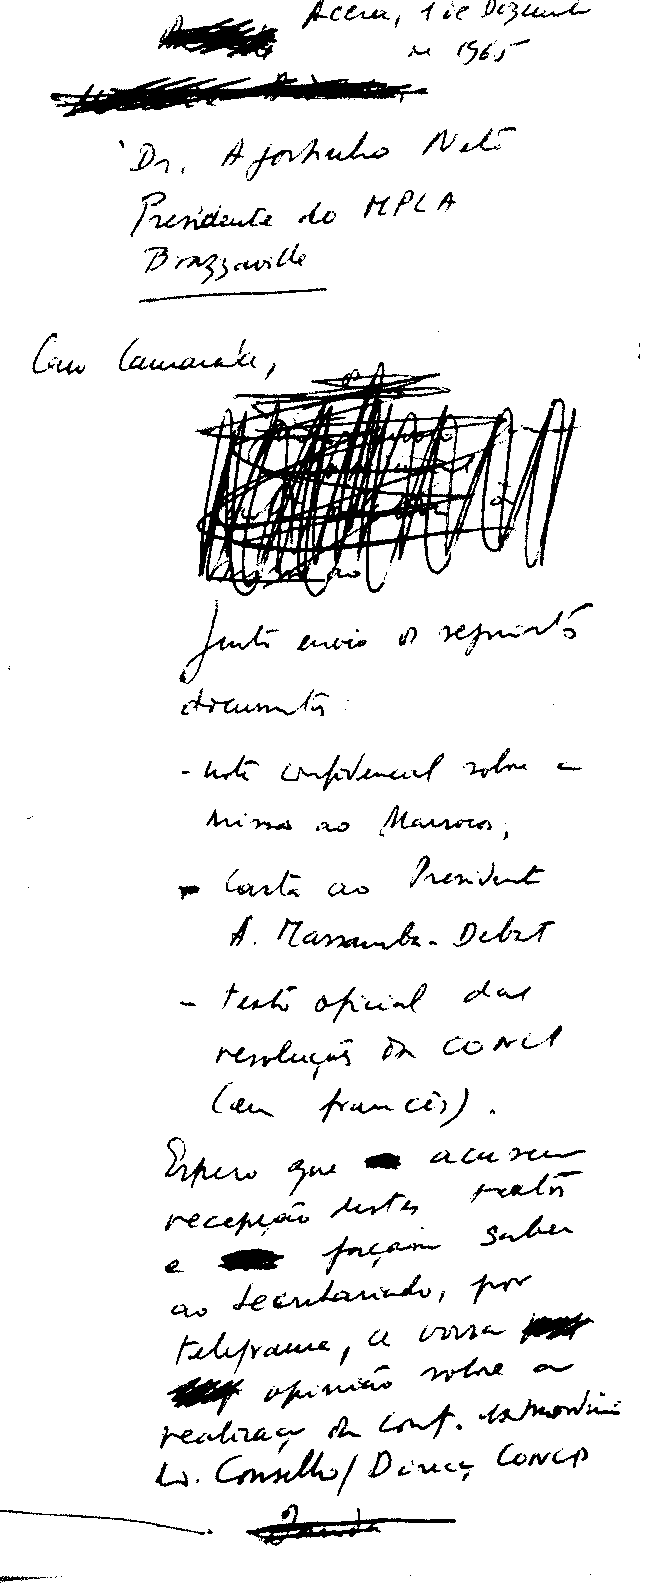 Accra, 1 de Dezembro
de 1965
Dr. Agostinho Neto
Presidente do MPLA
Brazzaville
Caro Camarada,
Junto envio os seguintes
documentos:
- nota confidencial sobre a
missão ao Marrocos;
- Carta ao Presidente
A. Massamba-Debat
- texto oficial das
resoluções da CONCP
(em francês).
Espero que acusem
recepção destes textos
e façam saber
ao Secretariado, por
telegrama, a vossa
opinião sobre a
realizaç da Conf.
Conselho/Direcç CONCP